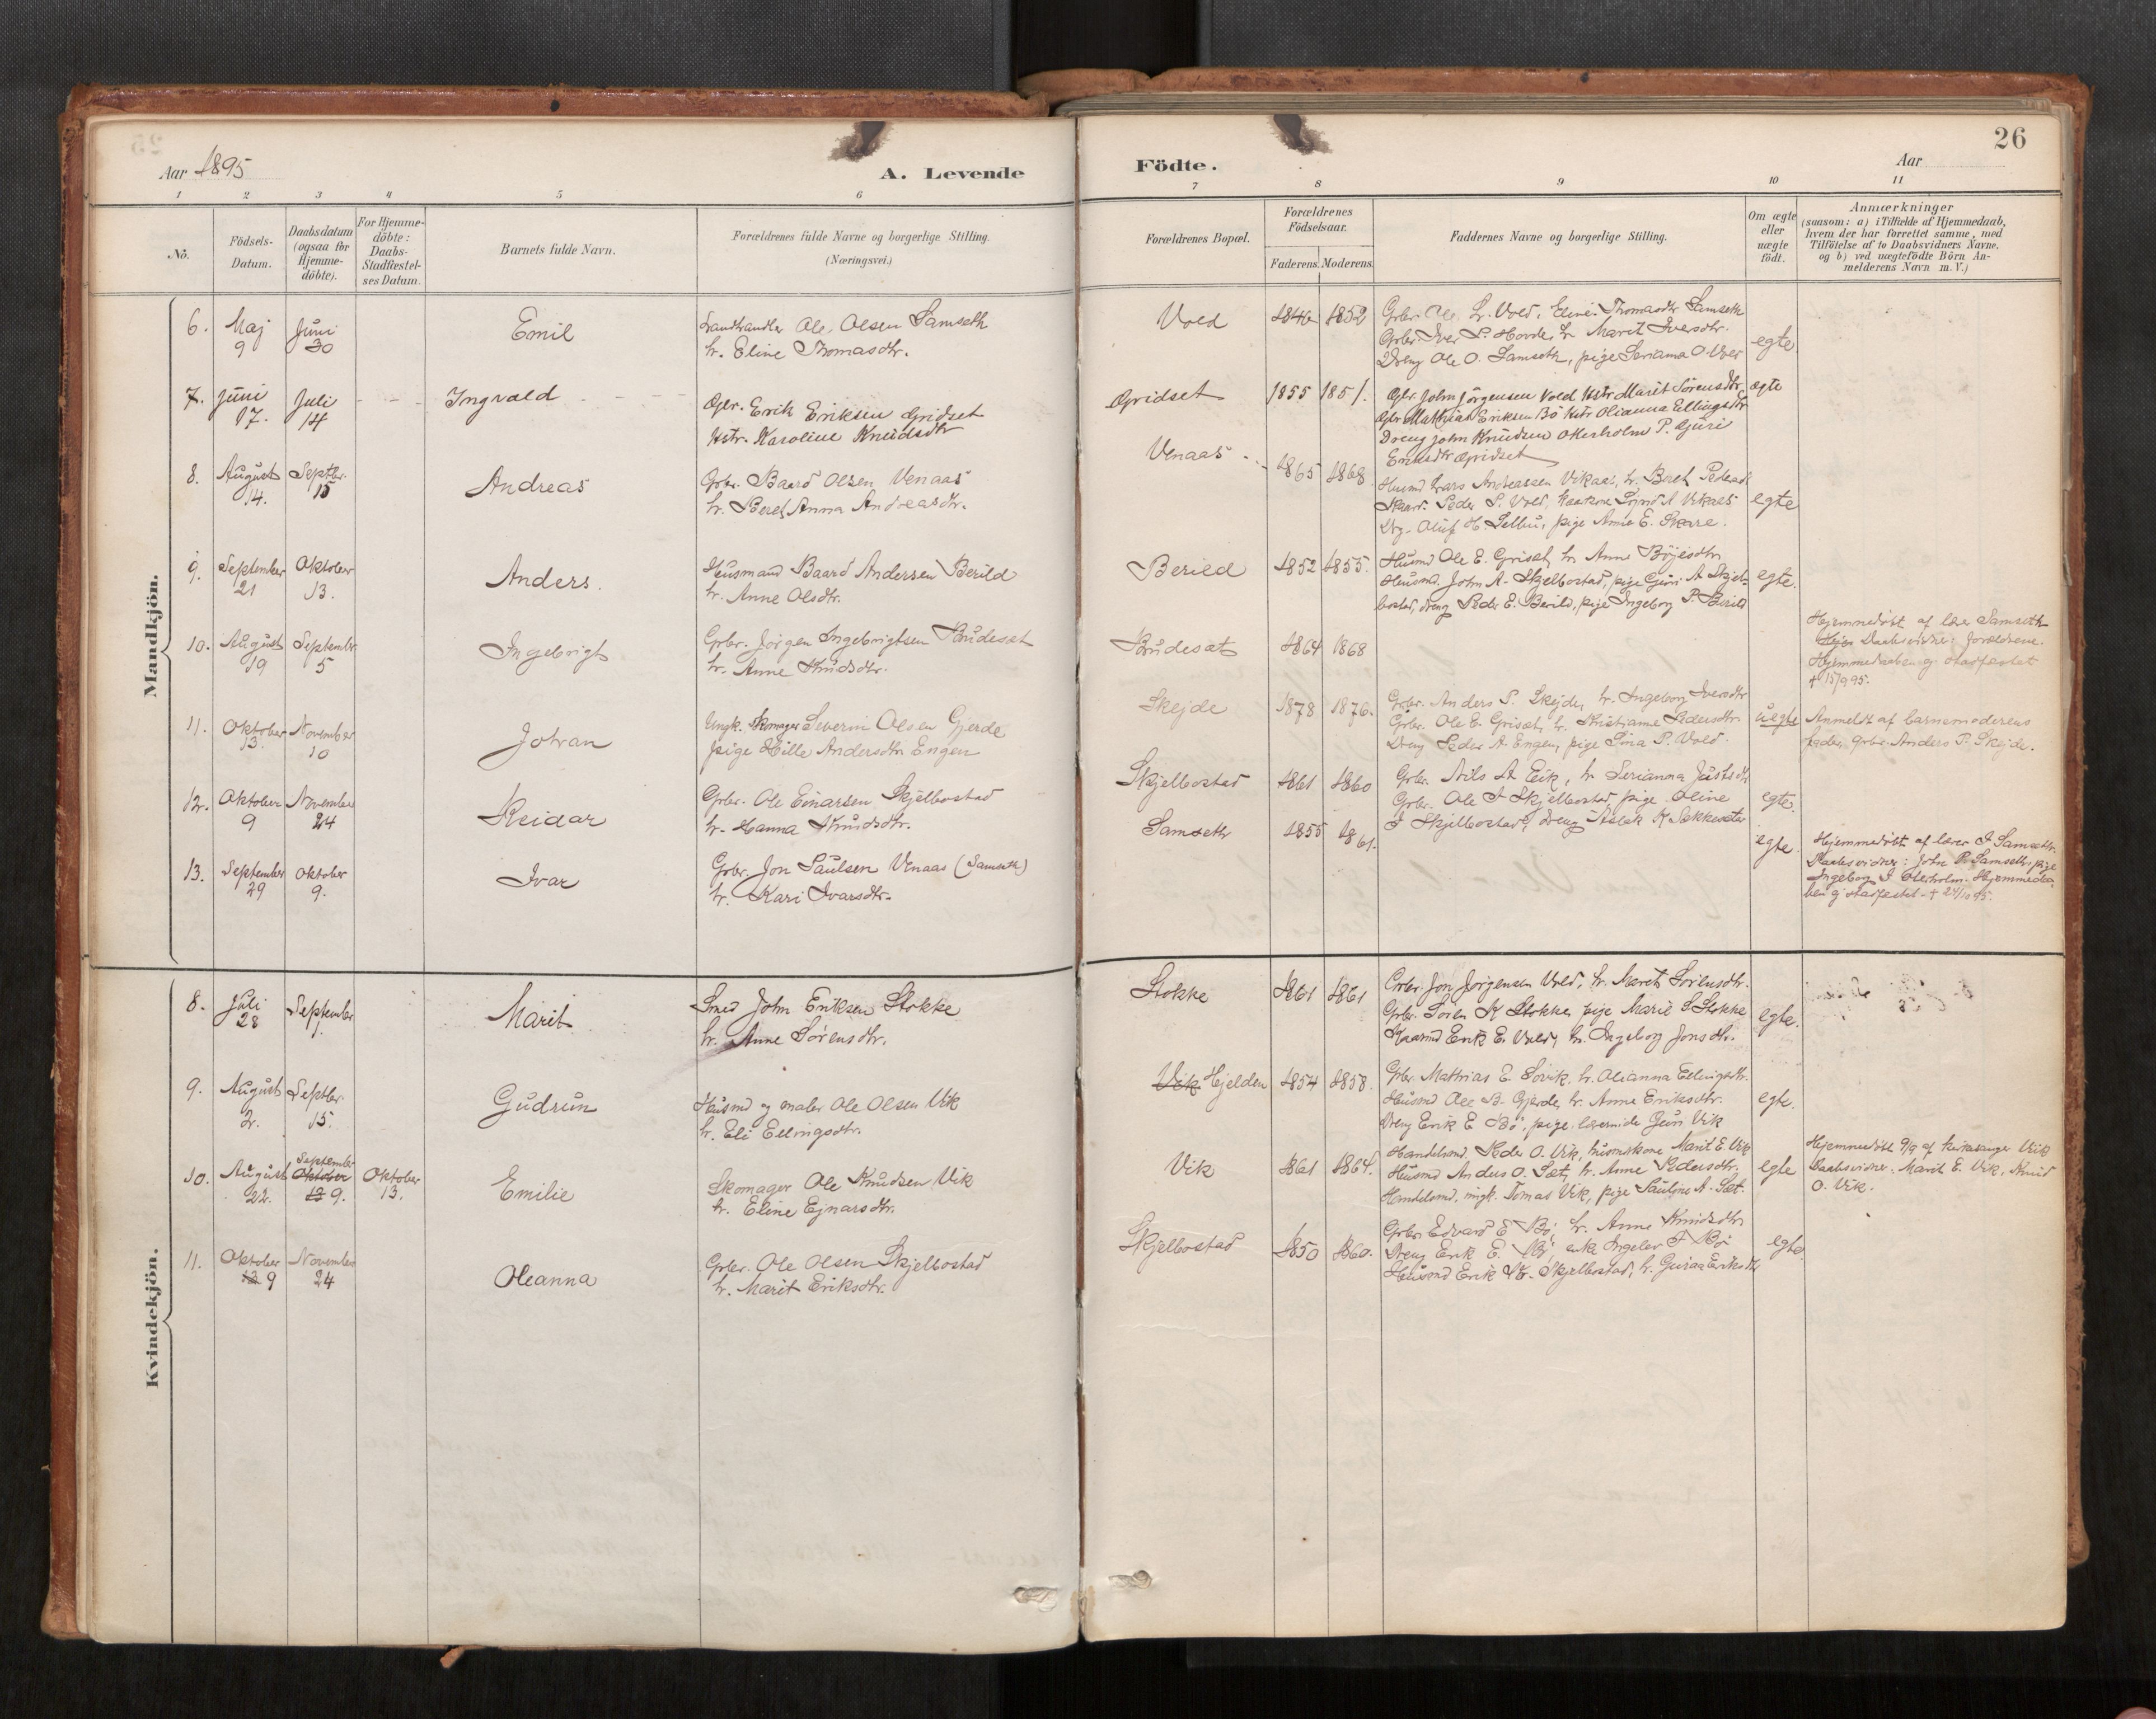 Aar 1895
A. Levende
Födte.
Aar
26
1 2 3 4 5 6 7 8 9 10 11
No.
Födsels-
Datum.
Daabsdatum
(ogsaa for
Hjemme-
döbte).
For Hjemme-
döbte:
Daabs-
Stadfæstel-
ses Datum.
Barnets fulde Navn.
Forældrenes fulde Navne og borgerlige Stilling.
(Næringsvei.)
Forældrenes Bopæl.
Forældrenes
Födselsaar.
Faderens. Moderens.
Faddernes Navne og borgerlige Stilling.
Om ægte
eller
uægte
födt.
Anmærkninger
(saasom: a) i Tilfælde af Hjemmedaab,
hvem der har forrettet samme, med
Tilföielse af to Daabsvidners Navne,
og b) ved uægtefödte Börn An-
melderens Navn m. V.)
Mandkjön.
6. Maj
9
Juni
30
Emil
Landhandler Ole Olsen Samseth
h. Eline Thomasdtr.
Vold
1846 1852
Grbr. Ole L. Vold, Eline Thomasdtr Samseth
Grbr. Iver P. Hovde, h. Marit Iversdtr.
Dreng Ole O. Samseth, pige Serianna O.
egte.
7. Juni
17.
Juli
14
Ingvald
Gbr. Erik Eriksen Gridset
Kstr. Karoline Knudsdtr
Gridset
1855 1851.
Gbr. John Jörgensen Vold Kstr Marit Sörensdtr.
Gbr Mathias Eriksen Bö Kstr. Olianna Ellingsdtr
Dreng John Knudsen Oterholm P. Guri
Eriksdtr Gridset
ægte
8. August
14.
Septbr.
15
Andreas
Grbr. Baard Olsen Venaas
h. Beret Anna Andreasdtr.
Venaas
1865 1868.
Husmd Lars Andreassen Vikaas, h. Beret
Peder P. Vold,
Oluf H. Selbu, pige Anne E. Skare.
egte
9. September
21
Oktober
13.
Anders.
Husmand Baard Andersen Berild
h. Anne Olsdtr.
Berild
1852 1855.
Husmd Ole E. Griset, h. Anne Böjesdtr.
Husmd. John A. Skjelbostad, pige Guri A Skjel-
bostad, dreng Peder E. Berild, pige Ingeborg P. Berild
egte.
10. August
19
September
5
Ingebrigt
Grbr. Jörgen Ingebrigtsen Brudeset
h. Anne Knudsdtr.
Brudeset
1864 1868
Hjemmedöbt af lærer Samseth
Daabsvidner: Forældrene.
Hjemmedaaben ej stadfæstet
+ 15/9 95.
11. Oktober
13.
November
10
Johan
Ungk. Skomager Severin Olsen Gjerde
pige Hille Andersdtr. Engen
Skejde
1878 1876.
Grbr. Anders P. Skejde, h. Ingeborg Iversdtr
Grbr. Ole E. Griset, h. Kristianne Pedersdtr
Dreng Peder A Engen, pige Lina P. Vold.
uegte
Anmeldt af barnemoderens
fader, Grbr. Anders P. Skejde.
12. Oktober
9
November
24
Reidar
Grbr. Ole Einarsen Skjelbostad
h. Hanna Knudsdtr.
Skjelbostad
1861 1860
Grbr. Nils A Eik, h. Serianna Justsdtr
Grbr. Ole I Skjelbostad, pige Oline
I Skjelbostad, dreng Aslak K.
egte.
13. September
29
Oktober
9.
Ivar
Grbr. Jon Paulsen Venaas (Samseth)
h. Kari Ivarsdtr.
Samseth
1855 1861.
egte.
Hjemmedöbt af lærer I Samseth.
Daabsvidner: John P. Samseth, pige
Ingeborg I Oterholm. Hjemmedaa-
ben ej stadfæstet - + 24/10 95.
Kvindekjön.
8. Juli
28
September
1.
Marit
Smed John Eriksen Stokke
h. Anne Sörensdtr.
Stokke
1861 1861
Grbr Jon Jörgensen Vold, h. Marit Sörensdtr.
Grbr. Sören K Stokke, pige Marie S Stokke
Erik E. Vold, h. Ingeborg Jonsdtr.
egte.
9. August
2.
Septbr.
15.
Gudrun
Husmd og maler Ole Olsen Vik
h. Eli Ellingsdtr.
Vik Hjelden
1854 1858.
Grbr. Mathias E. Sövik, h. Olianna Ellingsdtr.
Husmd Ole B. Gjerde, h. Anne Eriksdtr.
Dreng Erik E Bö, pige Guri Vik
egte.
10. August
22.
September
Oktober
13 9.
Oktober
13.
Emilie
Skomager Ole Knudsen Vik
h. Eline Ejnarsdtr.
Vik
1861 1864.
Handelsmd. Peder O. Vik, husmskone Marit E. Vik
Husmd Anders O. Sæt, h. Anne Pedersdtr.
Handelsmd, ungk. Tomas Vik, pige Pauline A. Sæt.
egte
Hjemmedöbt 9/9 af kirkesanger Vik
Daabsvidner: Marit E. Vik, Knud
O. Vik.
11. Oktober
13 9
November
24
Oleanna
Grbr. Ole Olsen Skjelbostad
h. Marit Eriksdtr.
Skjelbostad
1850 1860.
Grbr. Edvard E Bö, h. Anne Knudsdtr
Dreng Erik E. Bö, enk. Ingeler I Bö
Husmd Erik Skjelbostad, h. Guriaa Eriksdtr
egte